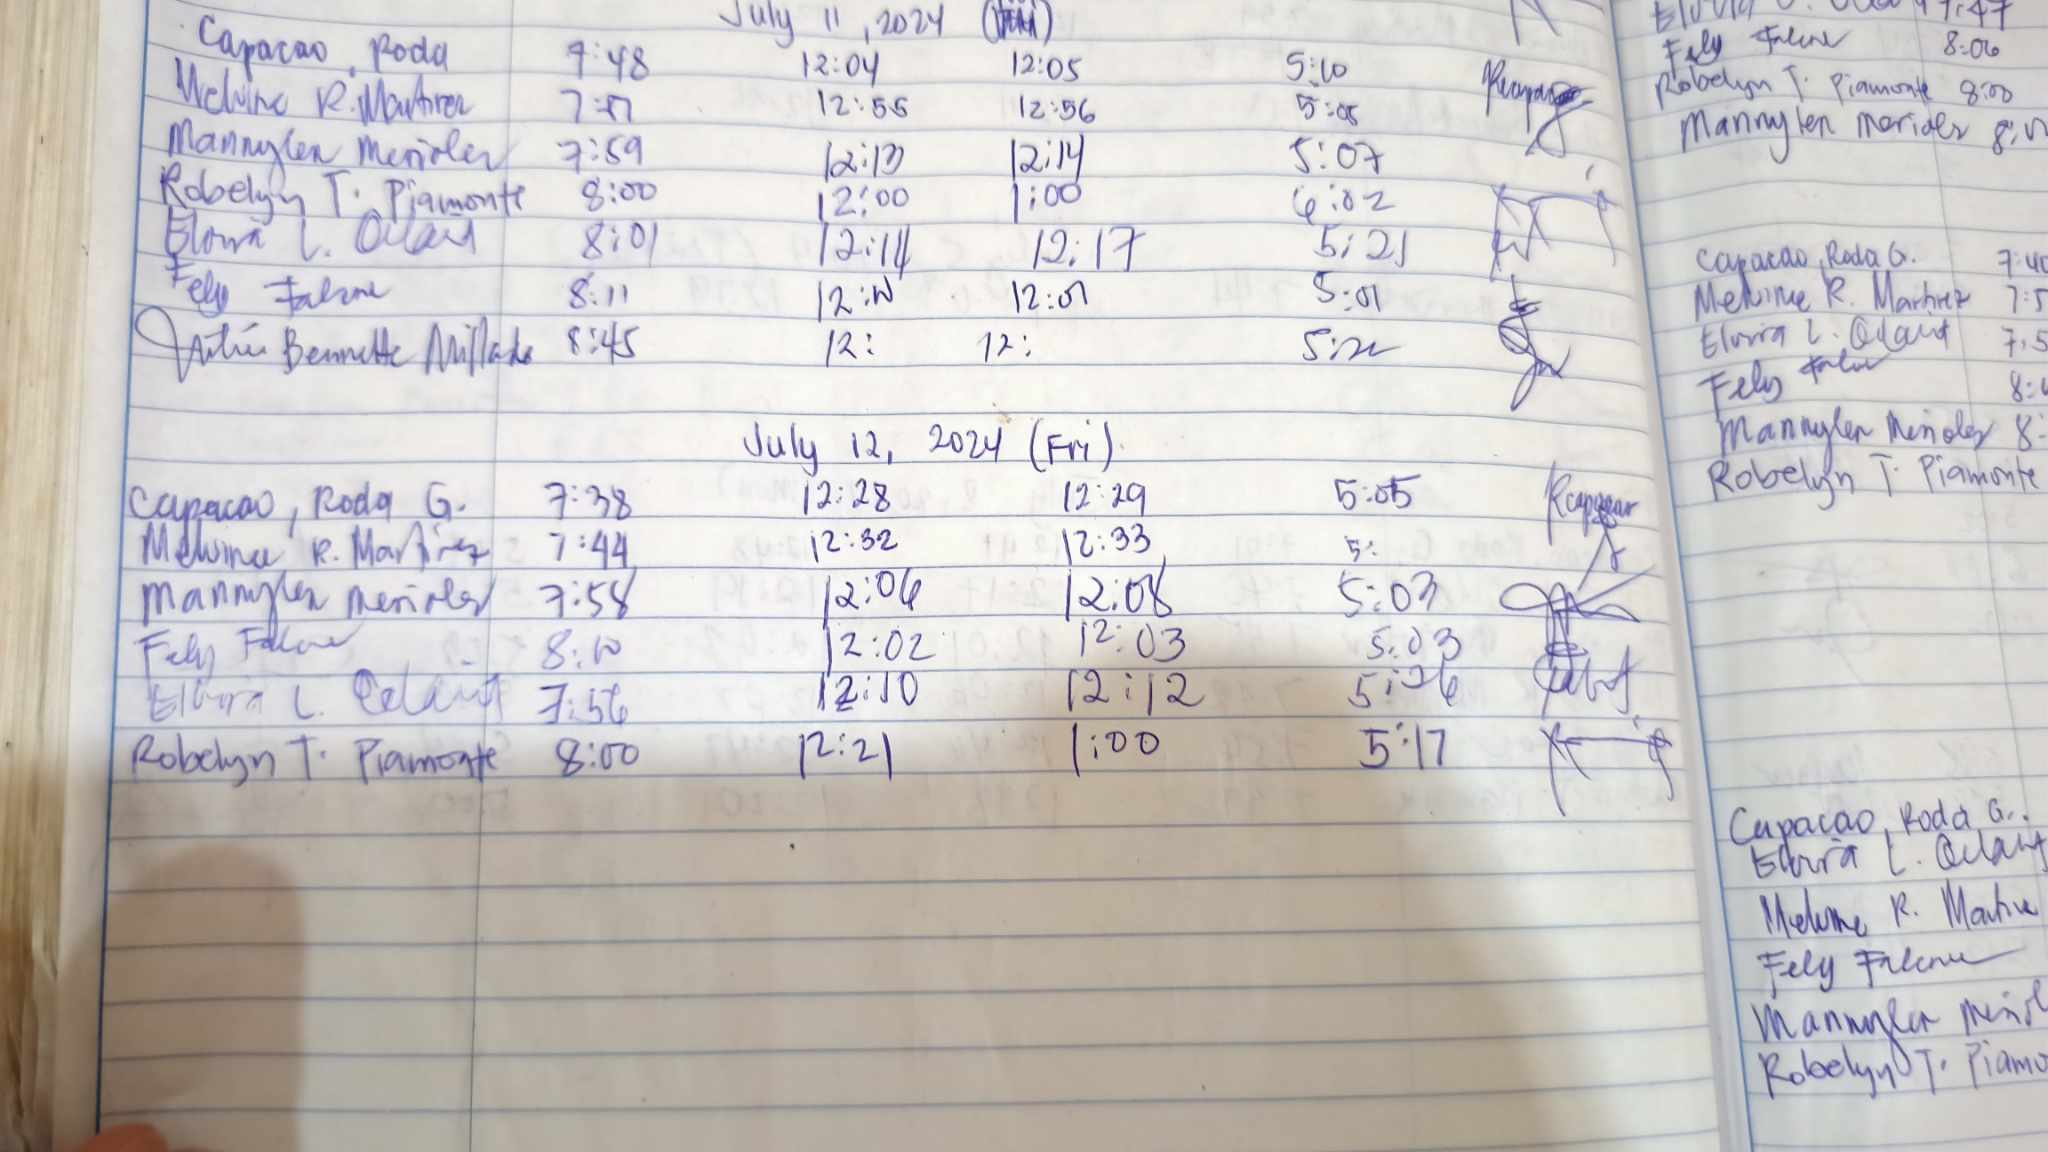 July 11, 2024
Capacao, Roda 7:48 12:04 12:05 5:10 Rcapacao
Melvine R. Martirez 12:55 12:56 5:05
Mannylen Merioles 7:59 12:13 12:14 5:07
Robelyn T. Piamonte 8:00 12:00 1:00 6:02
Elvira L. 8:01 12:14 12:17 5:21
Fely Falcone 8:11 12:01 5:01
Bennette 8:45 12: 12:
July 12, 2024 (Fri)
Capacao, Roda G. 7:38 12:28 12:29 5:05 Rcapacao
Melvine R. Martirez 7:44 12:32 12:33 5:
Mannylen Merioles 7:58 12:06 12:08 5:03
Fely Falcone 8:10 12:02 12:03 5:03
Elvira L. 7:56 12:10 12:12 5:26
Robelyn T. Piamonte 8:00 12:21 1:00 5:17
7:47
Fely Falcone 8:06
Robelyn T. Piamonte 8:00
Mannylen Merioles
Capacao, Roda G. 7:40
Melvine R. Martirez 7:5
Elvira L. 7:5
Fely Falcone
Mannylen Merioles 8:
Robelyn T. Piamonte
Capacao, Roda G.
Elvira L.
Melvine R.
Fely Falcone
Mannylen
Robelyn T. Piamo